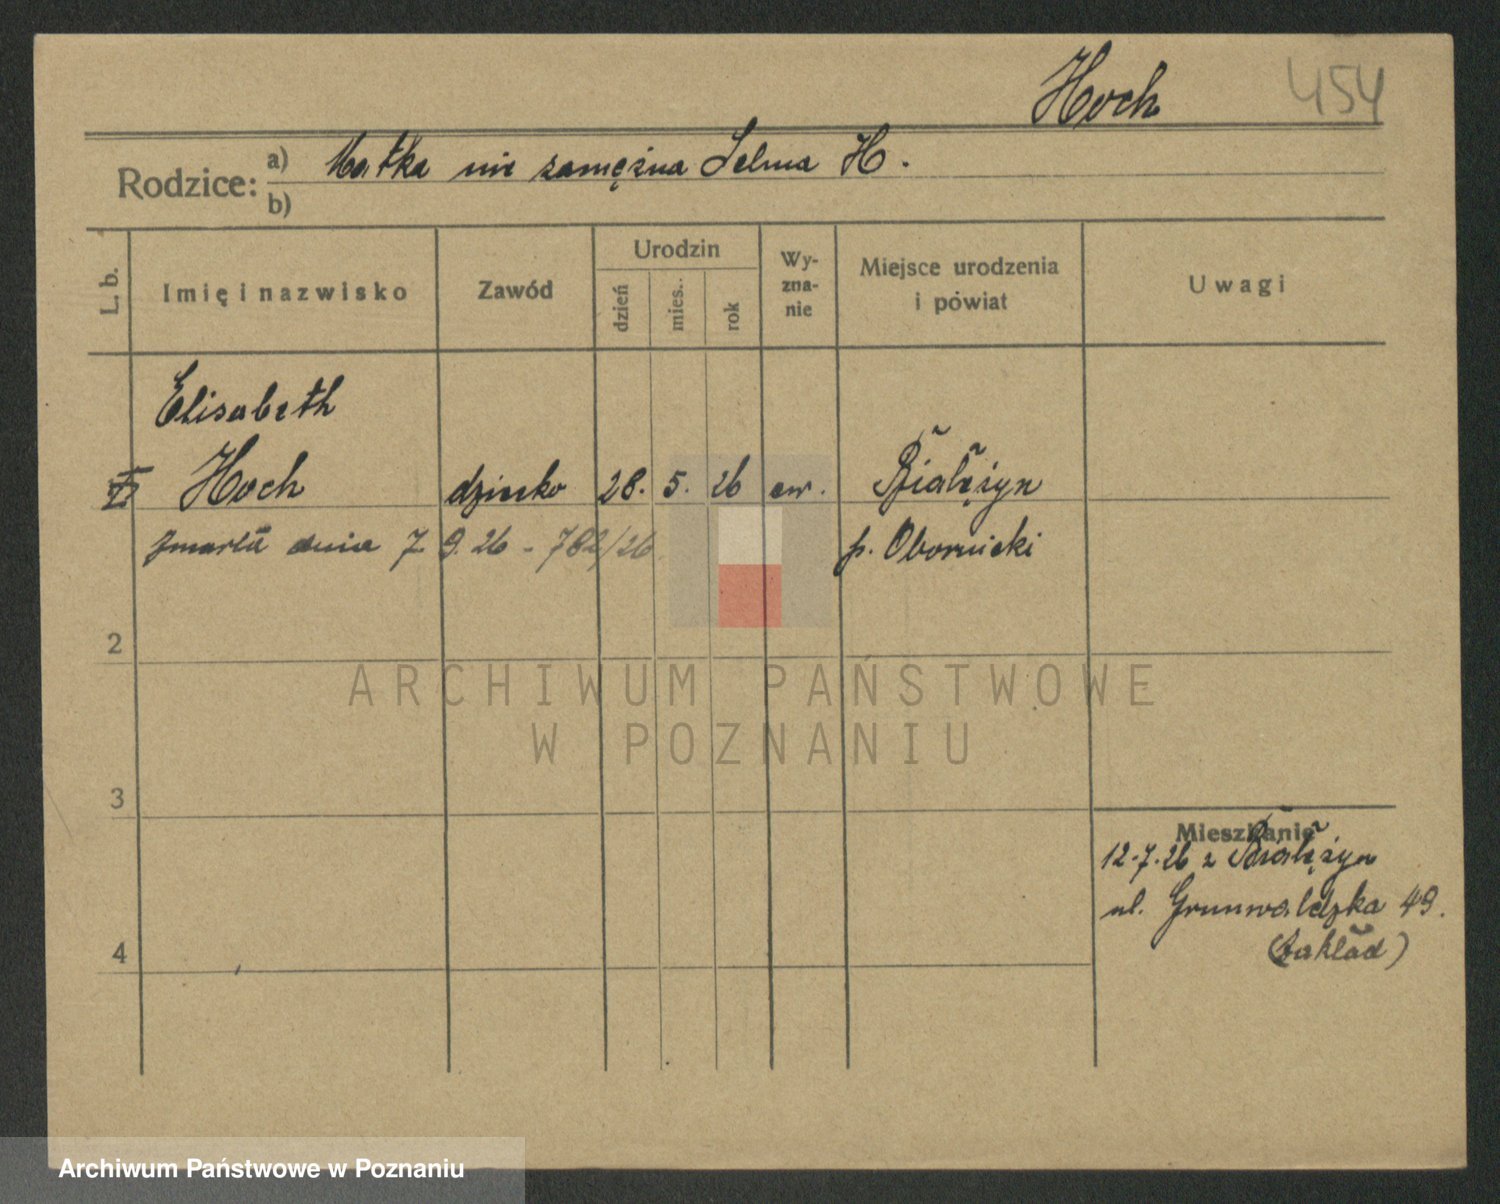 Hoch
454
Rodzice:
a) Matka nie zamężna Selma H.
b)
L. b.
Imię i nazwisko
Zawód
Urodzin
dzień
mies.
rok
Wy-
zna-
nie
Miejsce urodzenia
i powiat
Uwagi
Elisabeth
Hoch dziecko 28. 5. 26 ew. Białężyn
zmarła dnia 7. 9. 26 - 782/26 p. Obornicki
2
ARCHIWUM PAŃSTWOWE
W POZNANIU
3
Mieszkanie
12.7.26 z Białężyn
ul. Grunwaldzka 49.
(Zakład)
4
Archiwum Państwowe w Poznaniu